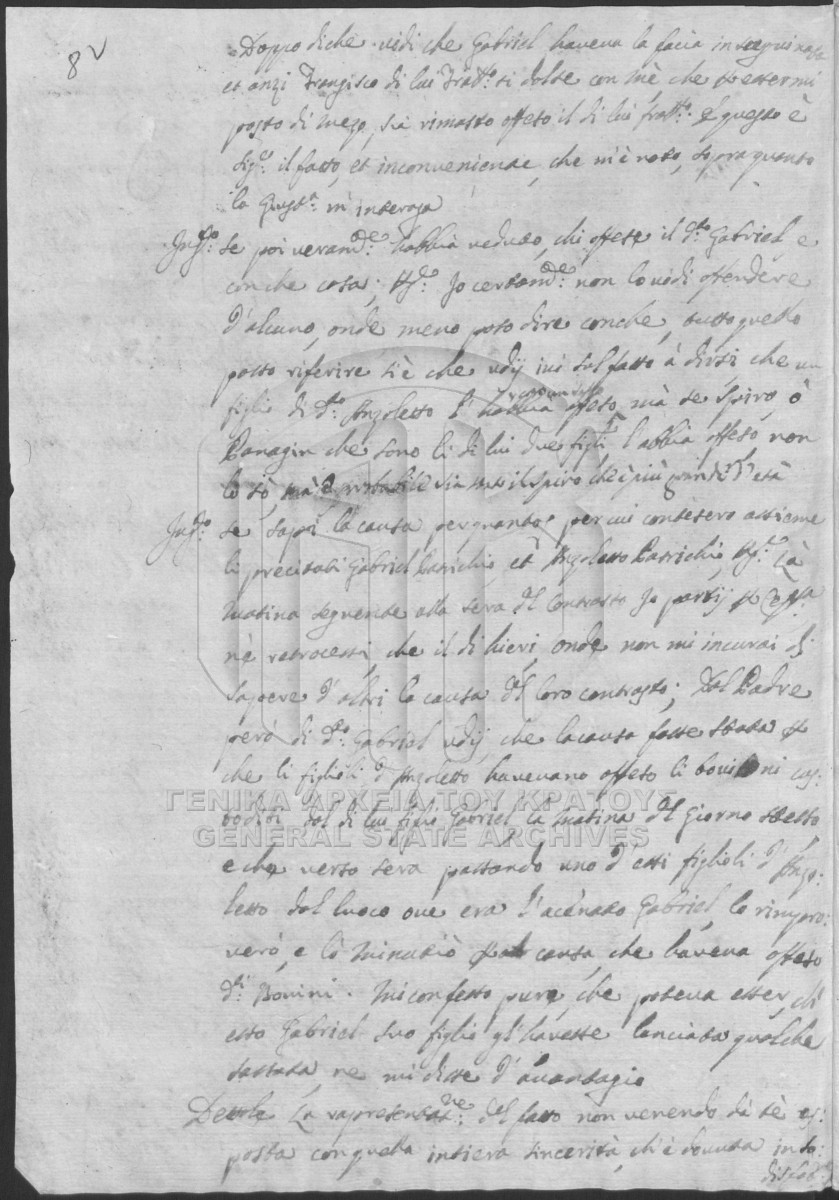 8v
Doppo di che vidi che Gabriel haveva la facia insanguinata
et anzi Frangisco di lui Fratt.o si dolse con mè che p esser mi
posto di mezo, sia rimasto offeso il di lui fratt.o E questo è
Sig.r il fatto, et inconveniense, che m'è noto, sopra quanto
la Giust.a m'interoga
Int.o Se poi veram.te habbia veduto, chi offese il d.o Gabriel e
con che cosa; R.e Jo certam.te non lo vidi offendere
d'alcuno, onde meno poso dire con che, tutto quello
posso riferire si è che udij ivi sul fatto à dirsi che un
figlio di d.o Anzoletto l'habbia offeso, mà se Spiro, ò
Panagin che sono li di lui due figli l'abbia offeso non
lo sò, mà è probabile sia stato il Spiro ch'è più grande d'età
Int.o se sapi la causa per cui contesero assieme
li precitati Gabriel Parichi, et Anzoletto Parichi, R.e Là
matina seguente alla sera del contrasto Jo partij p
nè retrocessi, che il dì hieri, onde non mi incurai di
sapere d'altri la causa del loro contrasto; Dal Padre
però di d.o Gabriel udij, che la causa fosse stata p
che li figlioli d'Anzoletto havevano offeso li bovini cus-
toditi dal di lui figlio Gabriel la matina del giorno stesso
e che verso sera passando uno d'essi figlioli d'Anzo-
letto dal luoco ove era l'acènato Gabriel, lo rimpro-
verò, e lo minaciò p causa, che haveva offeso
d.i Bovini. Mi confessò pure, che poteva esser, ch'
esso Gabriel suo figlio gl'havesse lanciata qualche
sassata, ne mi disse d'avantagio
Dettole La rapresentat.ne del fatto non venendo dà sè es-
posta con quella intiera sincerità, ch'è dovuta in so-
disfat
ΓΕΝΙΚΑ ΑΡΧΕΙΑ ΤΟΥ ΚΡΑΤΟΥΣ
GENERAL STATE ARCHIVES